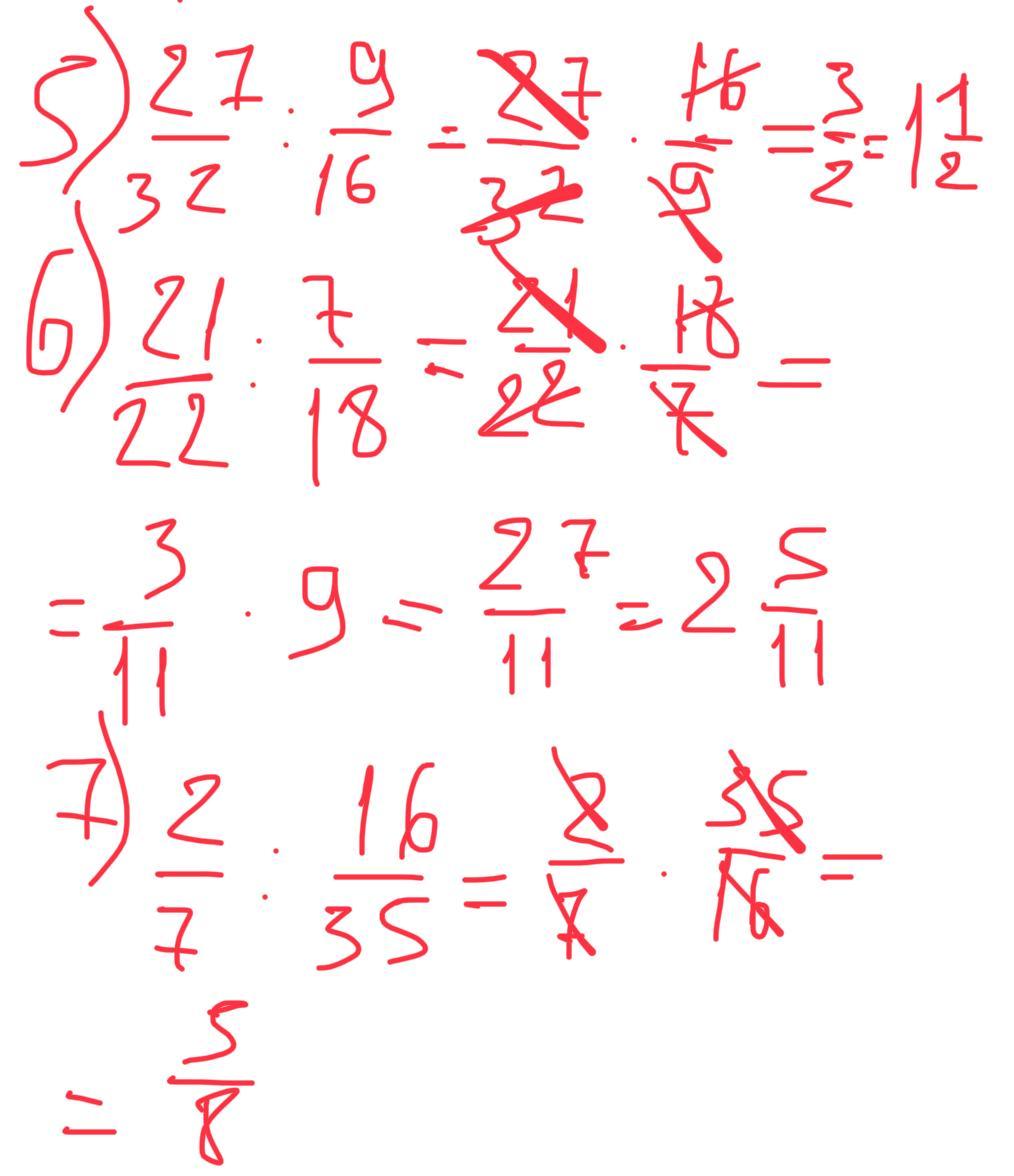 5) 27/32 : 9/16 = 27/32 · 16/9 = 3/2 = 1 1/2
6) 21/22 : 7/18 = 21/22 · 18/7 =
= 3/11 · 9 = 27/11 = 2 5/11
7) 2/7 : 16/35 = 2/7 · 35/16 =
= 5/8